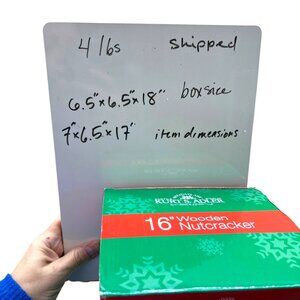 4 lbs shipped
6.5"x6.5"x18" box size
7"x6.5"x17" item dimensions
KURT S. ADLER
16" Wooden
Nutcracker